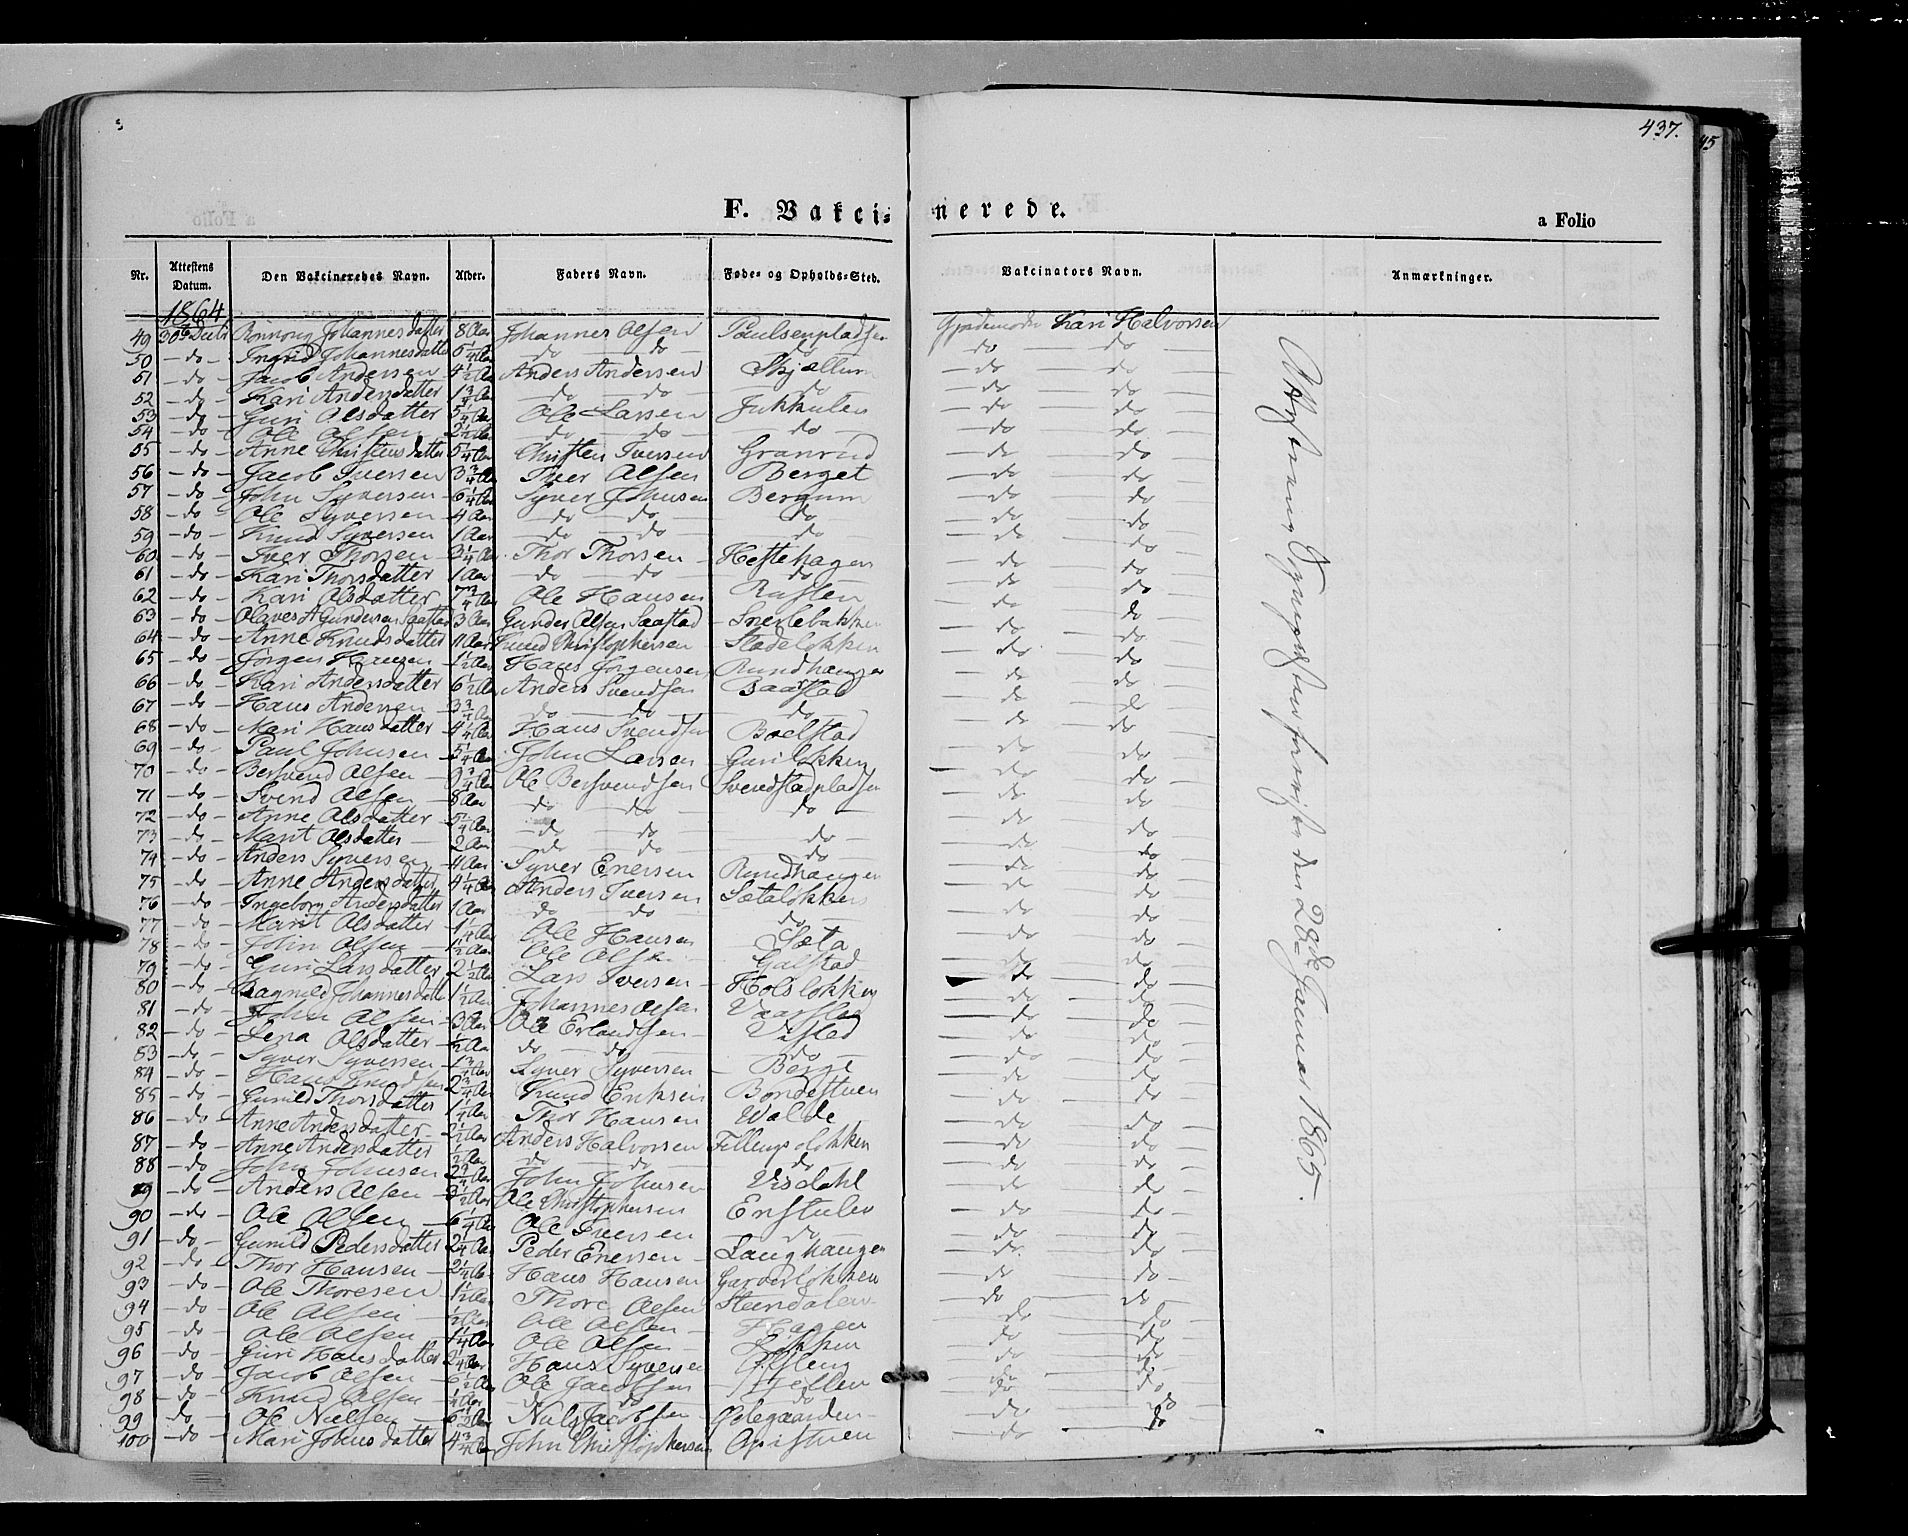 437.
45
F. Vakci- nerede.
a Folio
Nr. Attestens Datum. Den Vakcineredes Navn. Alder. Faders Navn. Føde- og Opholds-Sted. Vakcinators Navn. Anmærkninger.
1864
49 30te Johannesdatter 8 Aar Johannes Olsen Paulsenpladsen Gjordemoder Kari Halvorsen
50 - do - Ingrid Johannesdatter 5 1/4 Aar do do do do do
51 - do - Jacob Andersen 4 1/2 Aar Anders Andersen Skjællum do do
52 - do - Kari Andersdatter 1 3/4 Aar do do do do do
53 - do - Guri Olsdatter 5 1/4 Aar Ole Larsen Jukkulen do do
54 - do - Ole Olsen 2 1/2 Aar do do do do do
55 - do - Anne Christensdatter 5 1/4 Aar Christen Iversen Granrud do do
56 - do - Jacob Iversen 3 3/4 Aar Iver Olsen Berget do do
57 - do - John Syversen 6 1/4 Aar Syver Johnsen Bergum do do
58 - do - Ole Syversen 4 Aar do do do do do
59 - do - Knud Syversen 1 Aar do do do do do
60 - do - Iver Thorsen 3 1/4 Aar Thor Thorsen Hestehagen do do
61 - do - Kari Thorsdatter 1 Aar do do do do do
62 - do - Kari Olsdatter 7 3/4 Aar Ole Hansen Rusten do do
63 - do - Olaves Gundersen Saastad 3 Aar Gunder Olsen Saastad Snerlebakken do do
64 - do - Anne Knudsdatter 11 Aar Knud Christophersen Stadeløkken do do
65 - do - Jørgen Hansen 1 1/2 Aar Hans Jørgensen Rundhaugen do do
66 - do - Kari Andersdatter 6 1/2 Aar Anders Svendsen Baarstad do do
67 - do - Hans Andersen 3 3/4 Aar do do do do do
68 - do - Mari Hansdatter 4 1/4 Aar Hans Svendsen Boelstad do do
69 - do - Paul Johnsen 5 1/4 Aar John Larsen Guriløkken do do
70 - do - Bersvend Olsen 9 3/4 Aar Ole Bersvendsen Svendstadpladsen do do
71 - do - Svend Olsen 8 Aar do do do do do
72 - do - Anne Olsdatter 5 1/4 Aar do do do do do
73 - do - Marit Olsdatter 2 Aar do do do do do
74 - do - Anders Syversen 11 Aar Syver Enersen Rundhaugen do do
75 - do - Anne Andersdatter 4 1/4 Aar Anders Iversen Sætaløkken do do
76 - do - Ingeborg Andersdatter 1 Aar do do do do do
77 - do - Marit Olsdatter 1 1/4 Ole Hansen Sæta do do
78 - do - John Olsen 1 1/2 Aar Ole Olsen Galstad do do
79 - do - Guri Larsdatter 2 1/2 Aar Lars Iversen Holsløkken do do
80 - do - Ragnild Johannesdatter 1 1/2 Aar Johannes Olsen do do
81 - do - John Olsen 3 Aar Ole Erlandsen Visted do do
82 - do - Lena Olsdatter 1/2 Aar do do do do do
83 - do - Syver Syversen 1 3/4 Aar Syver Syversen Berge do do
84 - do - Hans Knudsen 2 3/4 Aar Knud Eriksen Bondestuen do do
85 - do - Gunild Thorsdatter 1 1/4 Aar Thor Hansen Volde do do
86 - do - Anne Andersdatter 2 1/2 Aar Anders Halvorsen Fillingsløkken do do
87 - do - Anne Andersdatter 1/2 Aar do do do do do
88 - do John Johnsen 2 3/4 Aar John Johnsen Visdahl do do
89 - do - Anders Olsen 3 1/2 Aar Ole Christophersen Enstulen do do
90 - do - Ole Olsen 6 1/4 Aar Ole Iversen do do do
91 - do - Gunild Pedersdatter 2 1/4 Aar Peder Enersen Langhaugen do do
92 - do - Thor Hansen 2 1/4 Aar Hans Hansen Garderløkken do do
93 - do - Ole Thoresen 1 1/2 Aar Thore Olsen Steendalen do do
94 - do - Ole Olsen 1/2 Aar Ole Olsen Haugen do do
95 - do - Ole Olsen 1 1/4 Aar Ole Olsen Løkken do do
96 - do Guri Hansdatter 2 1/4 Aar Hans Syversen do do
97 - do Jacob Olsen 6 1/2 Aar Ole Jacobsen do do
98 - do - Knud Olsen 1/4 Aar do do do do do
99 do - Ole Nielsen 6 1/2 Aar Niels Jacobsen Ødegaarden do do
100 - do - Mari Johnsdatter 4 3/4 Aar John Christophersen Opistuen do do
den 28de Januar 1865.